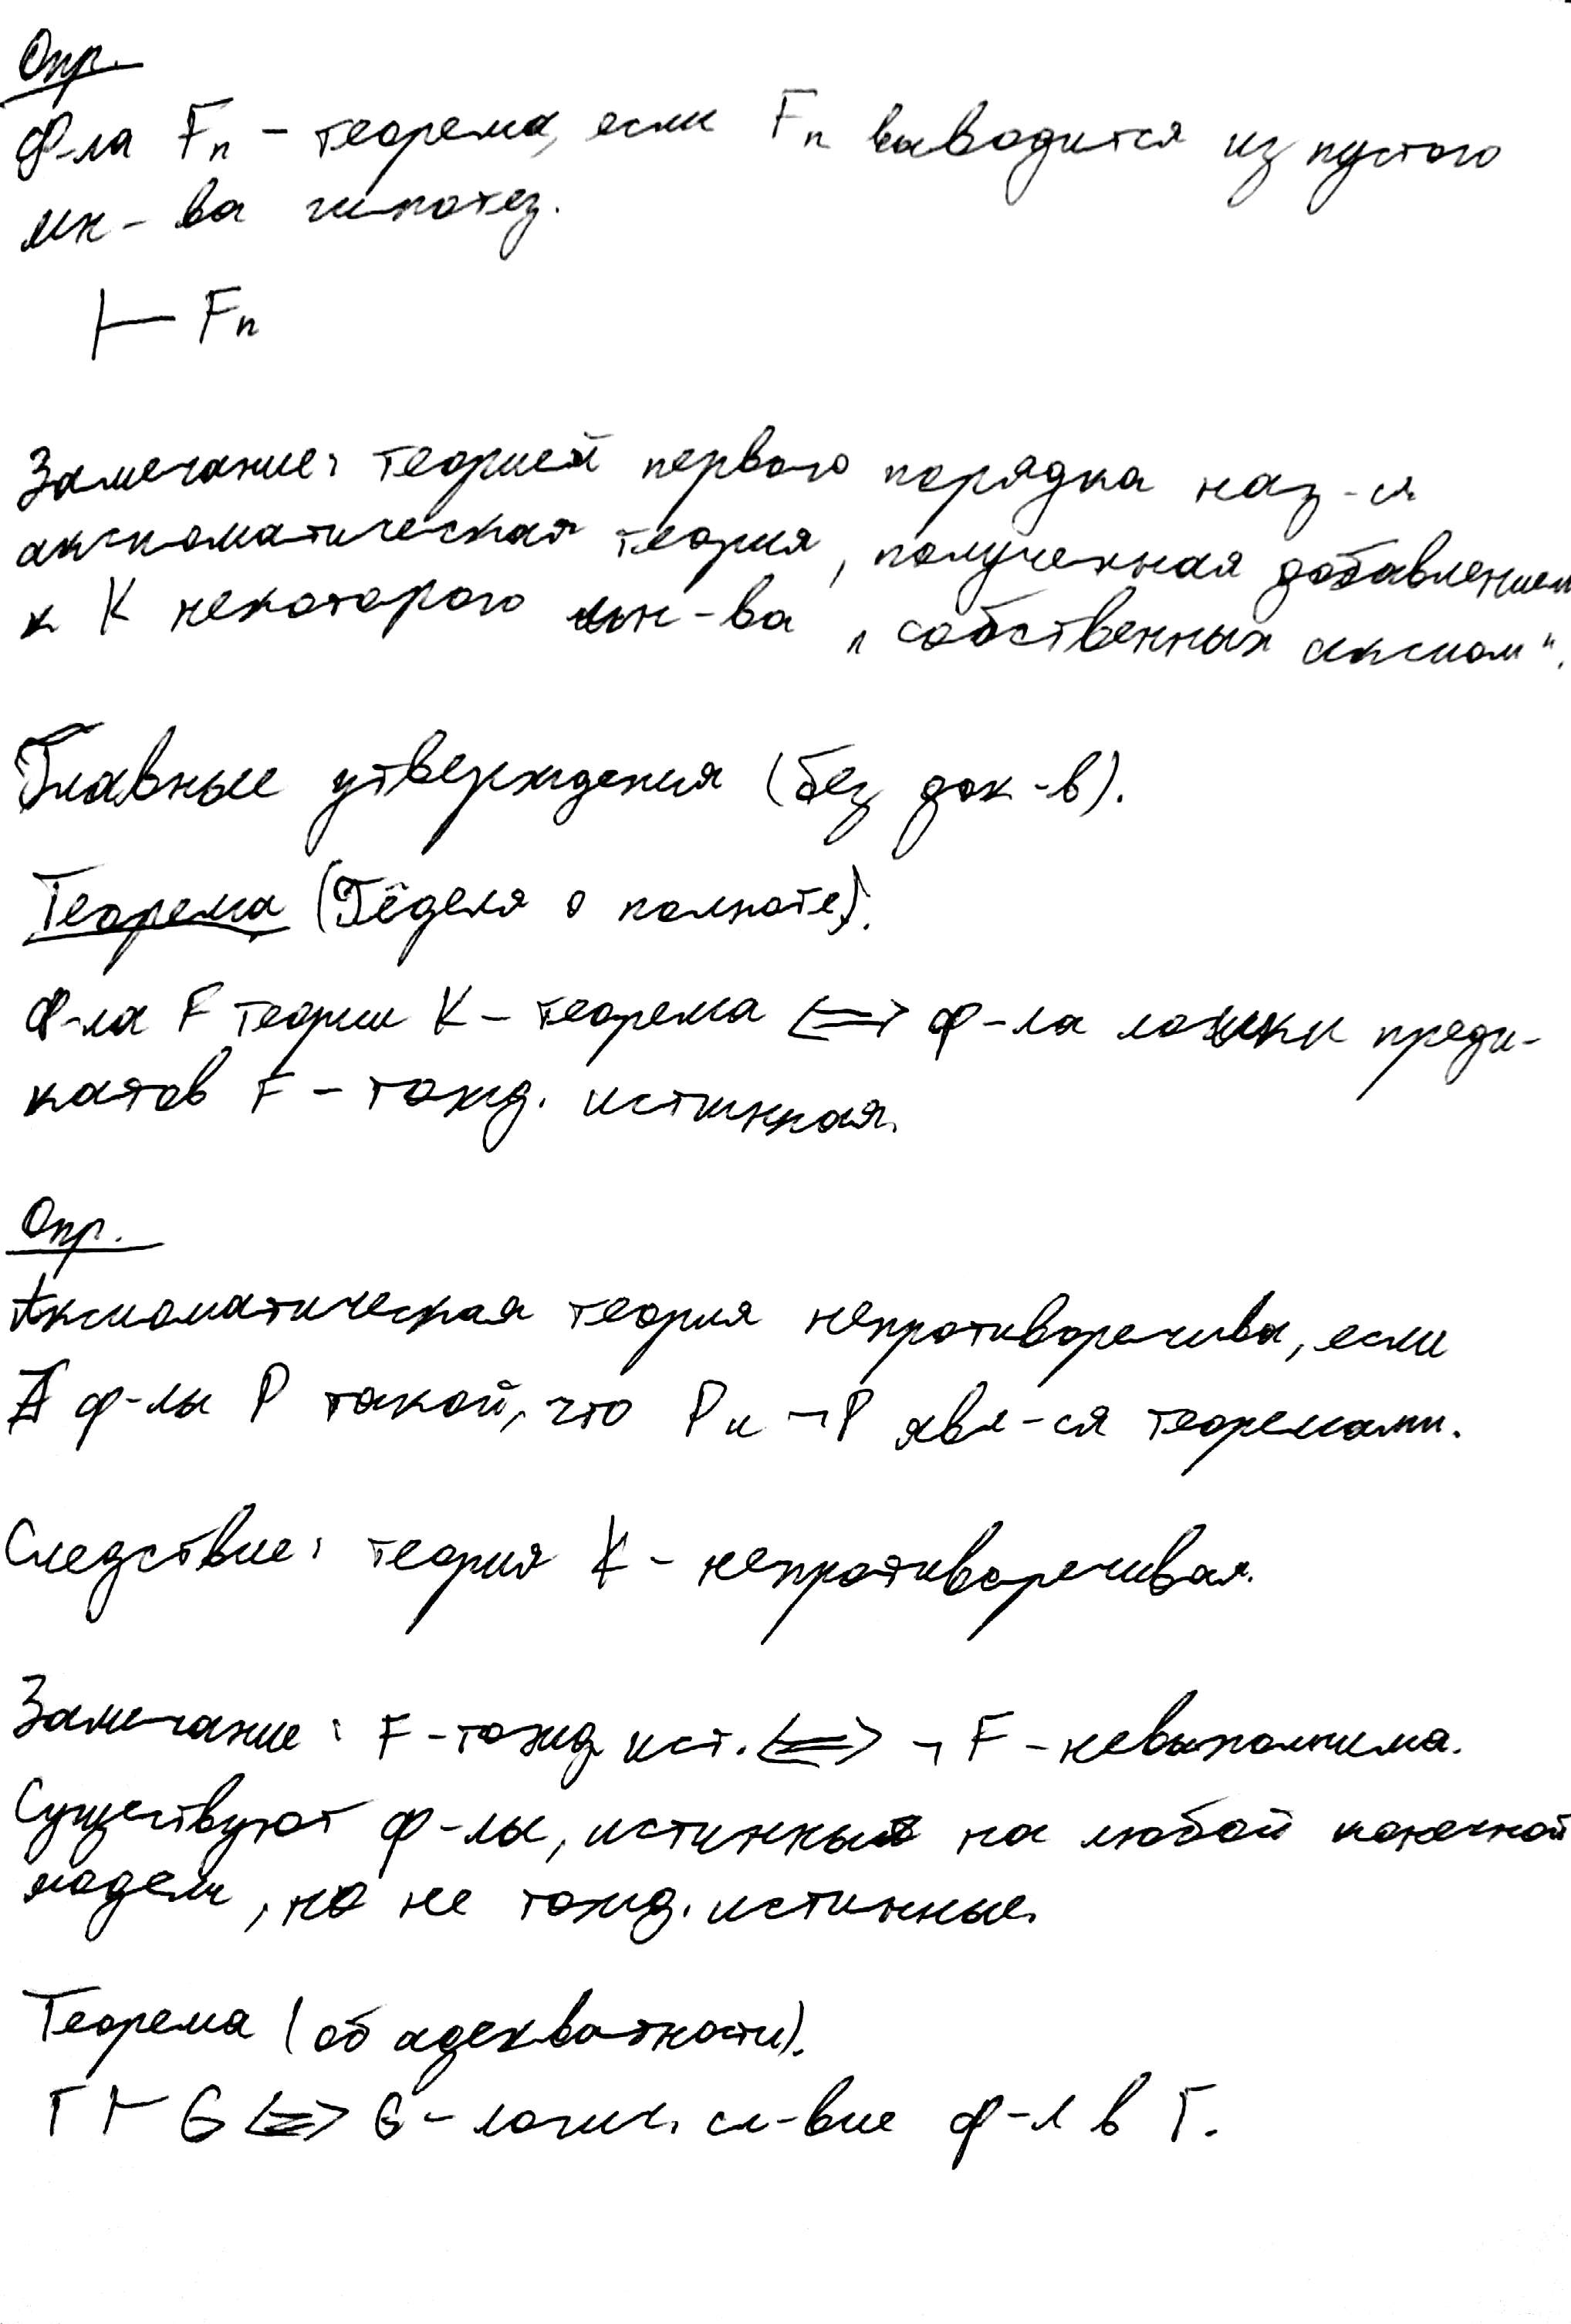 Опр.
Ф-ла Fₙ - теорема, если Fₙ выводится из пустого
мн-ва гипотез.
⊢ Fₙ
Замечание: теорией первого порядка наз-ся
аксиоматическая теория, полученная добавлением
к K некоторого мн-ва „собственных аксиом“.
Главные утверждения (без док-в).
Теорема (Гёделя о полноте).
Ф-ла F теории K - теорема <=> ф-ла логики преди-
катов F - тожд. истинная.
Опр.
Аксиоматическая теория непротиворечива, если
∄ ф-лы P такой, что P и ¬P явл-ся теоремами.
Следствие: теория K - непротиворечивая.
Замечание: F - тожд. ист. <=> ¬F - невыполнима.
Существуют ф-лы, истинные на любой конечной
модели, но не тожд. истинные.
Теорема (об адекватности).
Γ ⊢ G <=> G - логич. сл-вие ф-л в Γ.